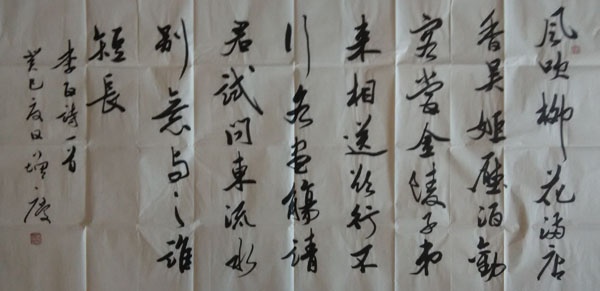 風吹柳花滿店
香吳姬壓酒勸
客嘗金陵子弟
来相送欲行不
行各盡觴請
君試問東流水
别意與之誰
短長
李白詩一首
癸巳夏日增慶